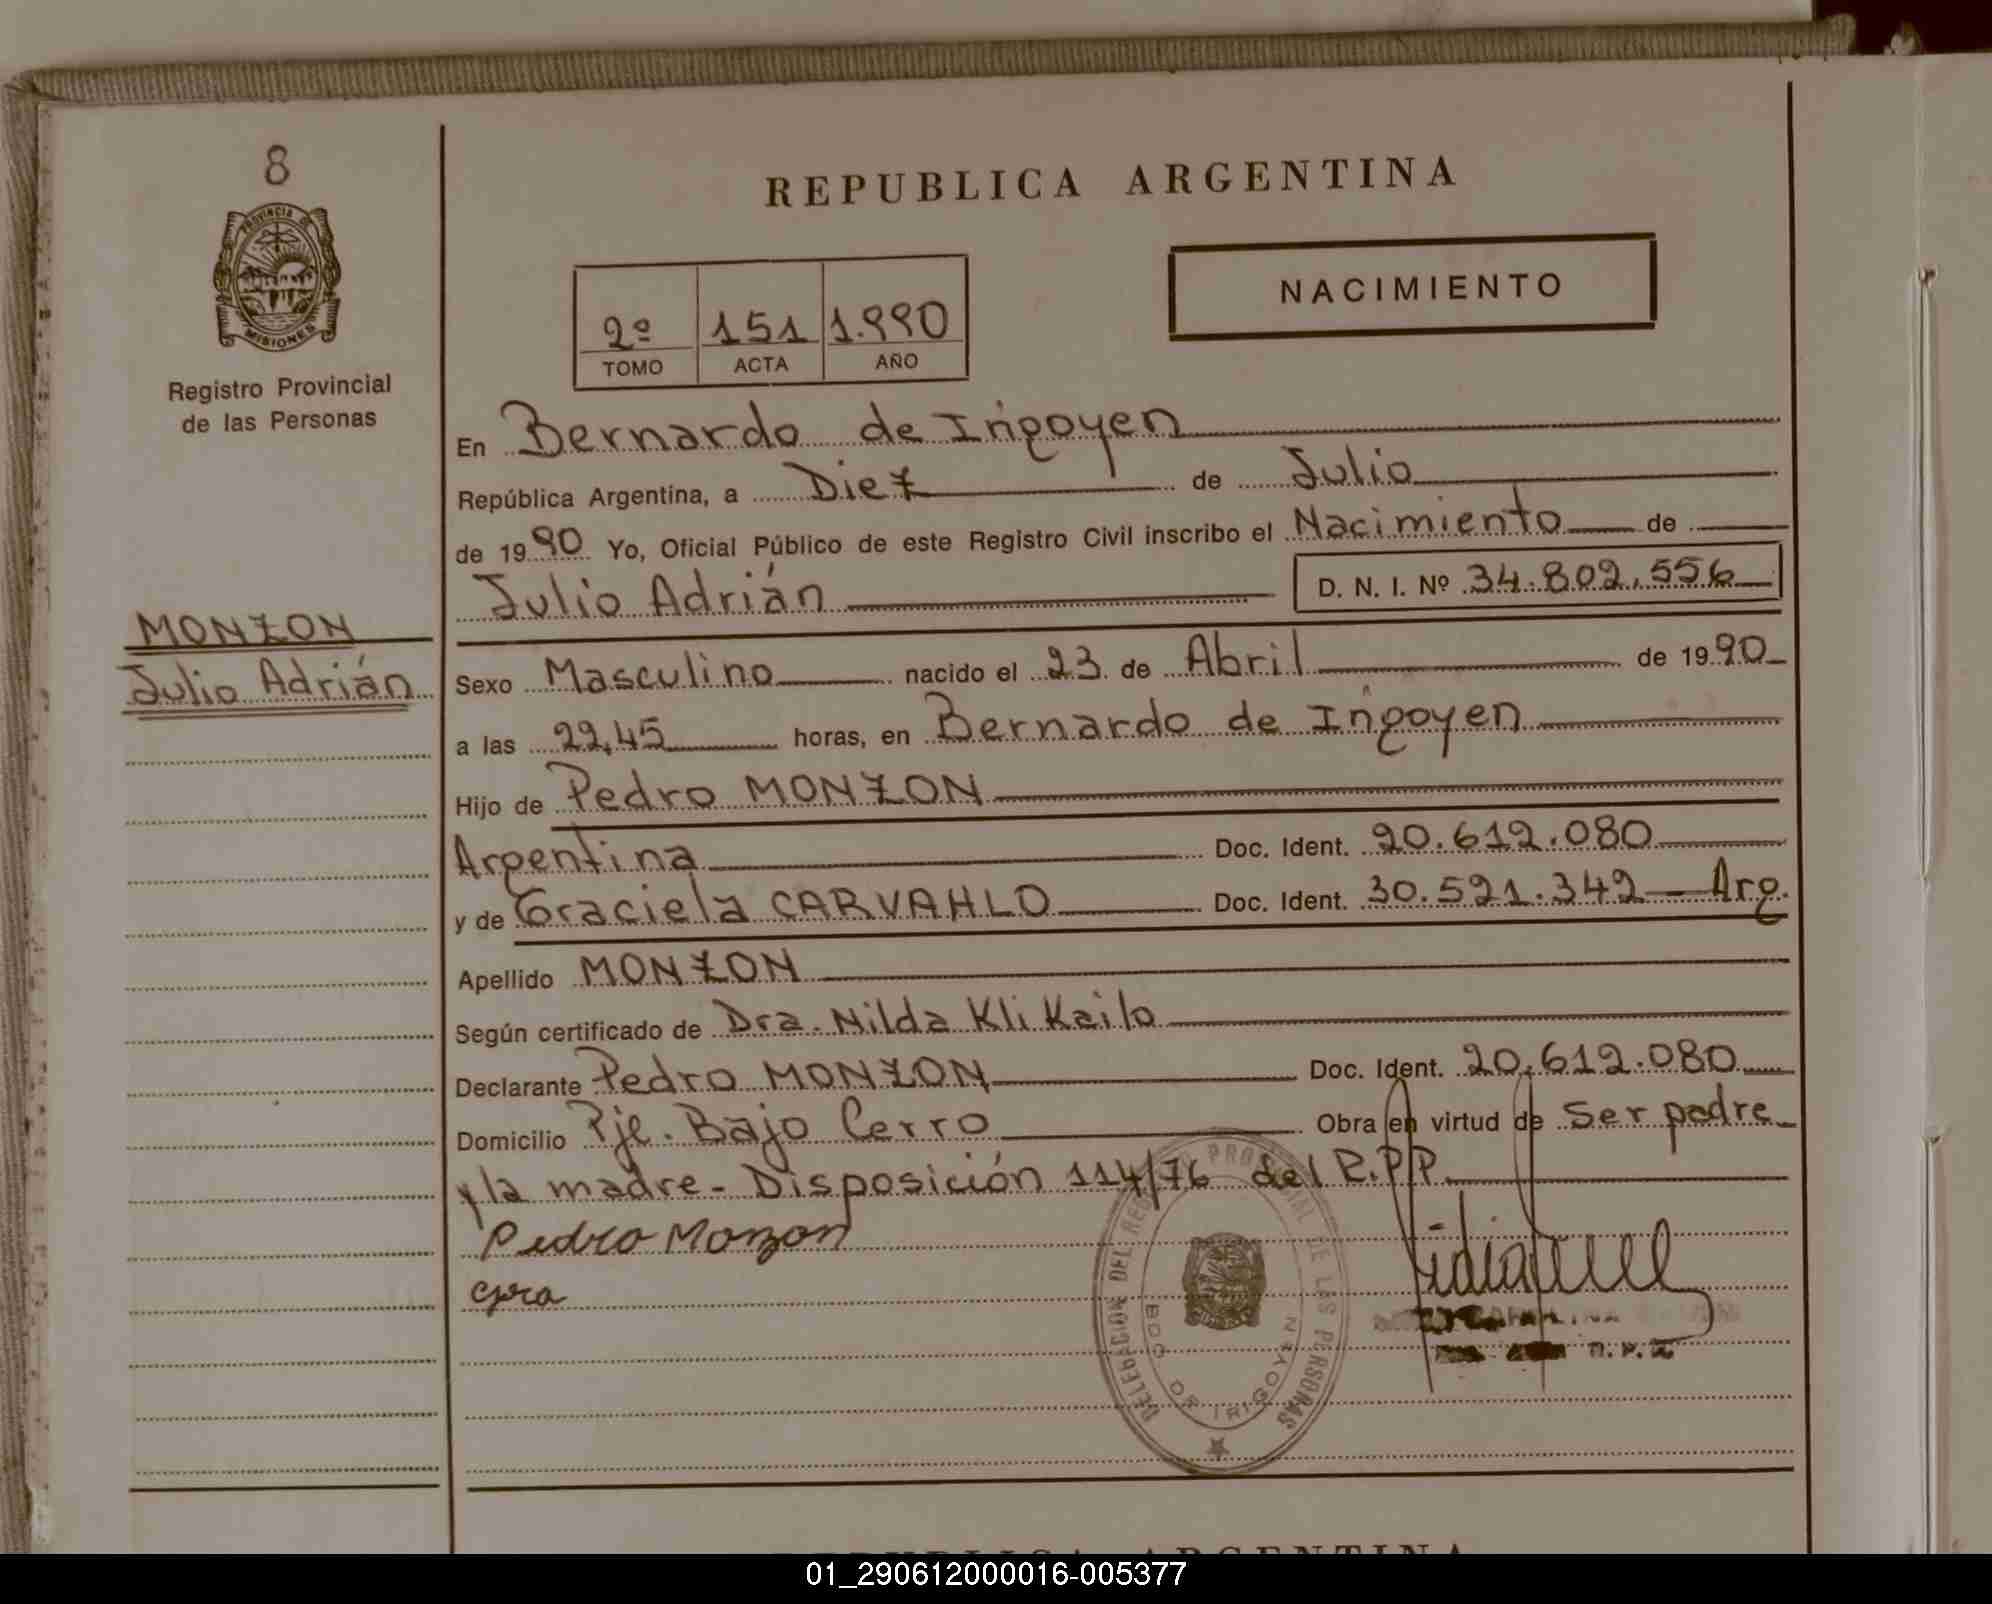 8
PROVINCIA DE
MISIONES
Registro Provincial
de las Personas
MONZON
Julio Adrián
REPUBLICA ARGENTINA
NACIMIENTO
2º 151 1.990
TOMO ACTA AÑO
En Bernardo de Irigoyen
República Argentina, a Diez de Julio
de 1990 Yo, Oficial Público de este Registro Civil inscribo el Nacimiento de
Julio Adrián D. N. I. Nº 34.802.556
Sexo Masculino nacido el 23 de Abril de 1990
a las 22,45 horas, en Bernardo de Irigoyen
Hijo de Pedro MONZON
Argentina Doc. Ident. 20.612.080
y de Graciela CARVAHLO Doc. Ident. 30.521.342 — Arg.
Apellido MONZON
Según certificado de Dra. Nilda Kli Kailo
Declarante Pedro MONZON Doc. Ident. 20.612.080
Domicilio Pje. Bajo Cerro Obra en virtud de ser padre
y la madre - Disposición 114/76 del R.P.P.
Pedro Monzon
DELEGACION DEL REGISTRO PROVINCIAL DE LAS PERSONAS
BDO DE IRIGOYEN
REPUBLICA ARGENTINA
01_290612000016-005377